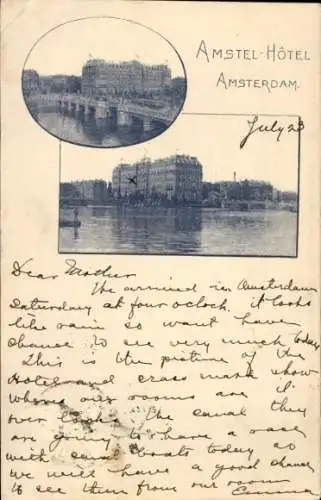 AMSTEL-HÔTEL
AMSTERDAM.
July 23
Dear Mother
We arrived in Amsterdam
Saturday at four oclock. it looks
like rain so want have
chance to see very much today
This is the picture of the
Hotel and cross mark show
where our rooms are it
over looks the canal they
are going to have a race
with canal boats today so
we will have a good chance
to see them from our room